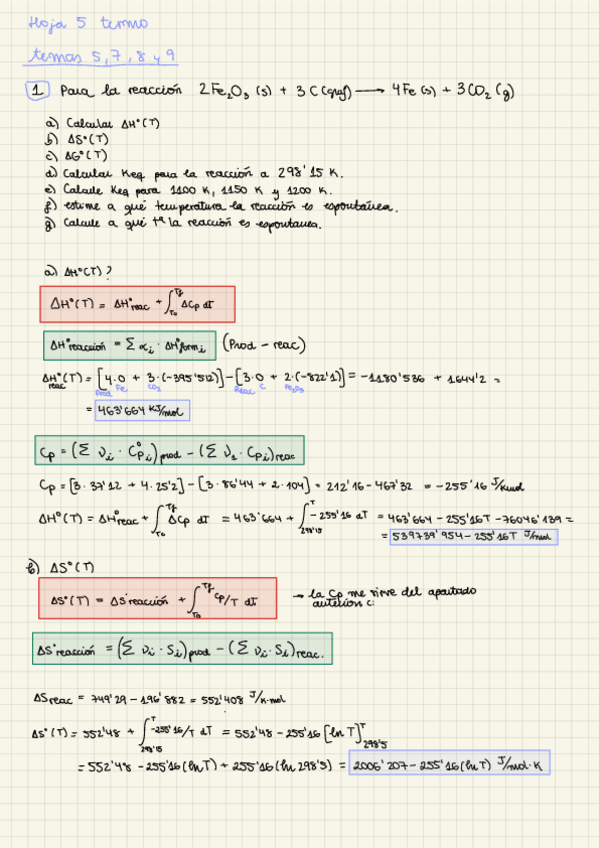 Hoja 5 termo
temas 5, 7, 8 y 9
1 Para la reacción 2Fe₂O₃ (s) + 3C (graf) → 4Fe (s) + 3CO₂ (g)
a) Calcular ΔH°(T)
b) ΔS°(T)
c) ΔG°(T)
d) Calcular Keq para la reacción a 298'15 K.
e) Calcule Keq para 1100 K, 1150 K y 1200 K.
f) estime a qué temperatura la reacción es espontánea.
g) Calcule a qué tª la reacción es espontanea.
a) ΔH°(T)?
ΔH°(T) = ΔH°reac + ∫_{T₀}^{Tf} ΔCp dT
ΔH°reacción = Σ αᵢ · ΔH°formᵢ (Prod - reac)
ΔH°reac(T) = [4·0 + 3·(-395'512)] - [3·0 + 2·(-822'1)] = -1180'536 + 1644'2 =
Prod Fe CO₂ Reac C Fe₂O₃
= 463'664 KJ/mol
Cp = (Σ νᵢ · Cp°ᵢ)prod - (Σ νᵢ · Cpᵢ)reac
Cp = [3·37'12 + 4·25'2] - [3·86'44 + 2·104] = 212'16 - 467'32 = -255'16 J/Kmol
ΔH°(T) = ΔH°reac + ∫_{T₀}^{Tf} ΔCp dT = 463'664 + ∫_{298'15}^{T} -255'16 dT = 463'664 - 255'16T - 76046'139 =
= 539739'954 - 255'16T J/mol
b) ΔS°(T)
ΔS°(T) = ΔS°reacción + ∫_{T₀}^{Tf} Cp/T dT → la Cp me sirve del apartado
anterior c:
ΔS°reacción = (Σ νᵢ · Sᵢ)prod - (Σ νᵢ · Sᵢ)reac.
ΔSreac = 749'29 - 196'882 = 552'408 J/K·mol
ΔS°(T) = 552'48 + ∫_{298'15}^{T} -255'16/T dT = 552'48 - 255'16 [ln T]_{298'5}^{T}
= 552'48 - 255'16 (ln T) + 255'16 (ln 298'5) = 2006'207 - 255'16 (ln T) J/mol·K